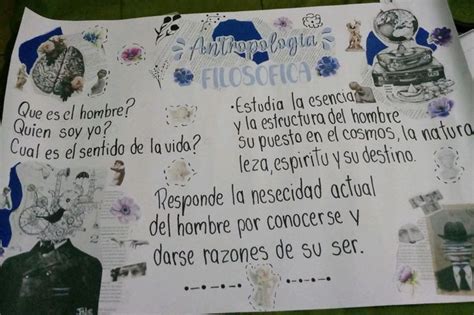 Antropología
FILOSOFICA
Que es el hombre?
Quien soy yo?
Cual es el sentido de la vida?
·Estudia la esencia
y la estructura del hombre
su puesto en el cosmos, la natura
leza, espiritu y su destino.
Responde la nesecidad actual
del hombre por conocerse y
darse razones de su ser.